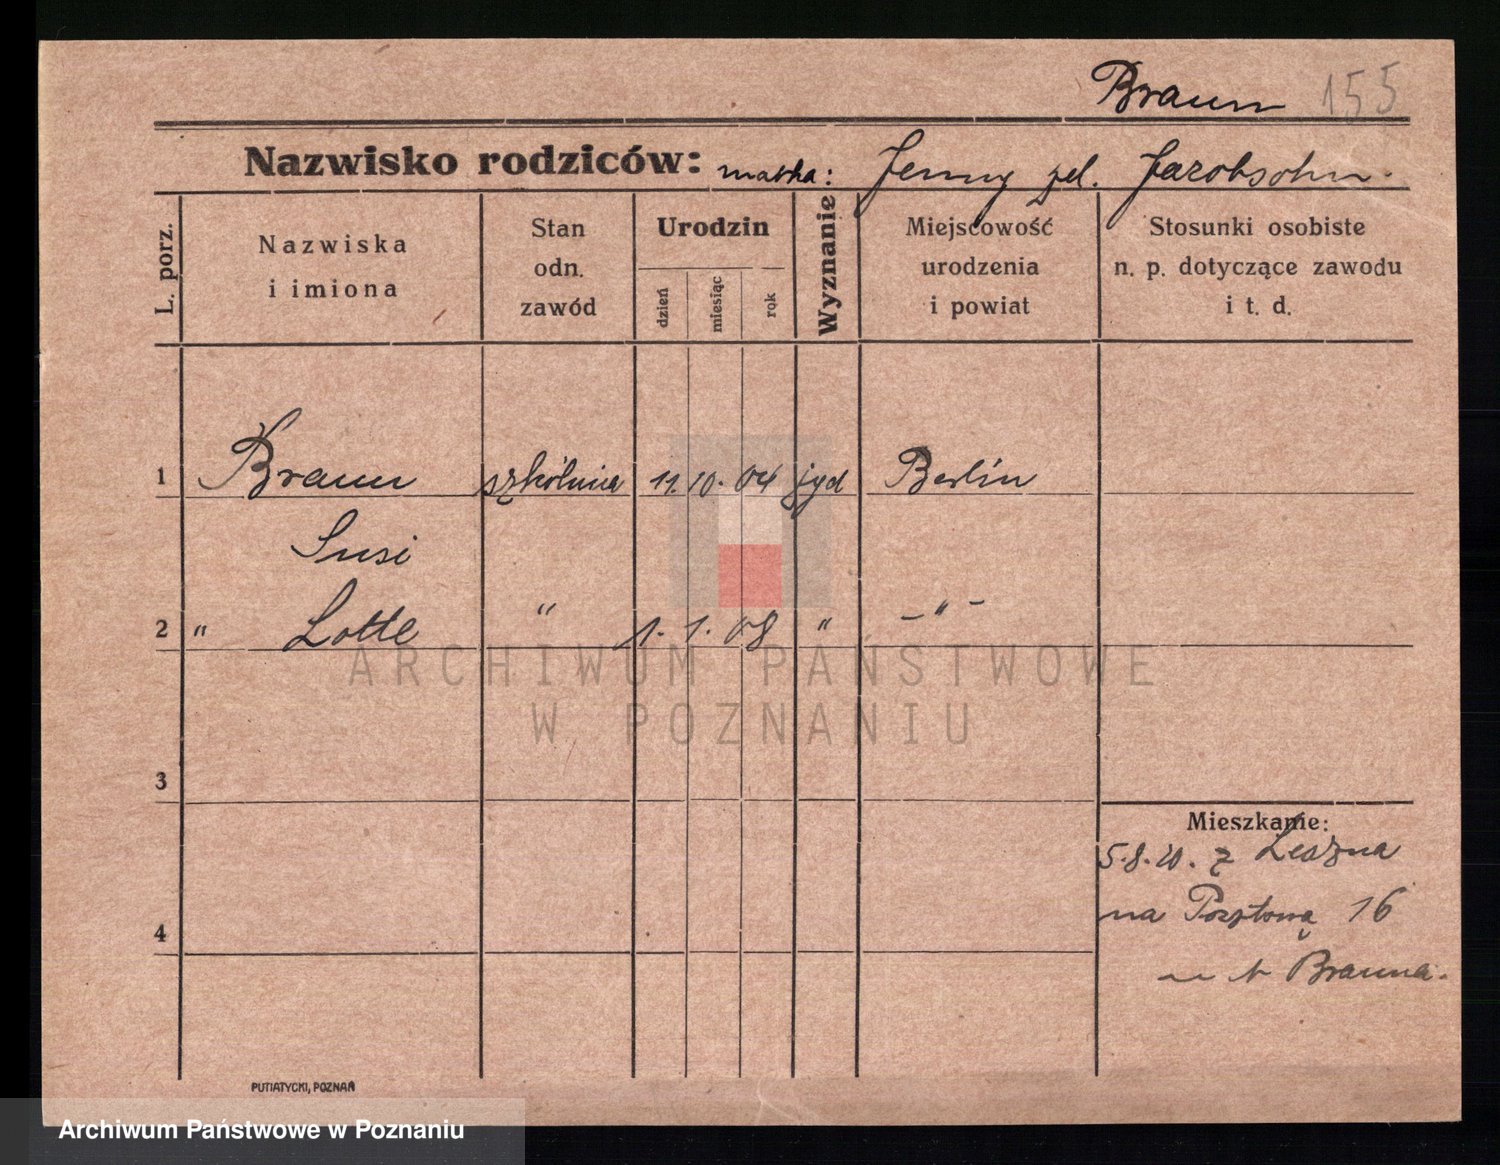 Braun 155
Nazwisko rodziców: matka: Jenny żel. Jacobsohn.
L. porz.
Nazwiska
i imiona
Stan
odn.
zawód
Urodzin
dzień
miesiąc
rok
Wyznanie
Miejscowość
urodzenia
i powiat
Stosunki osobiste
n. p. dotyczące zawodu
i t. d.
1 Braun szkólnica 11. 10. 04 żyd Berlin
Susi
2 " Lotte " 1. 1. 08 " - " -
ARCHIWUM PAŃSTWOWE
W POZNANIU
3
Mieszkanie:
5.8.20. z Leszna
na Pocztową 16
u Brauna.
4
PUTIATYCKI, POZNAŃ
Archiwum Państwowe w Poznaniu